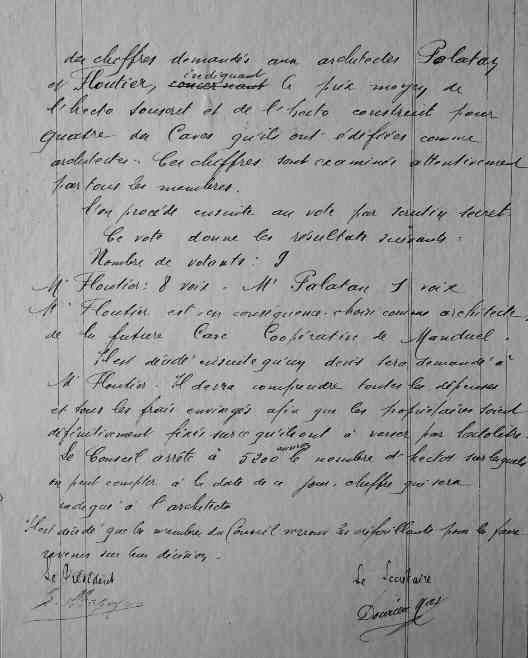 des cheffres demandés aux architectes Palatan
et Floutier, concernant indiquant le prix moyen de
l'hecto souscrit et de l'hecto construit pour
quatre des Caves qu'ils ont édifiées comme
architectes. Ces cheffres sont examinés attentivement
par tous les membres.
L'on procède ensuite au vote par scrutin secret.
Ce vote donne les résultats suivants :
Nombre de votants : 9
Mr Floutier : 8 voix - Mr Palatan 1 voix
Mr Floutier est en conséquence choisi comme architecte
de la future Cave Coopérative de Manduel.
Il est décidé ensuite qu'un devis sera demandé à
Mr Floutier. Il devra comprendre toutes les dépenses
et tous les frais envisagés afin que les propriétaires soient
définitivement fixés sur ce qu'ils ont à verser par hectolitre.
Le Conseil arrête à 5200 le nombre d'hectos sur lesquels
on peut compter à la date de ce jour, cheffre qui sera
à l'architecte
Il est décidé que les membres du Conseil verront les défaillants pour les faire
revenir sur leur décision.
Le Président Le Secrétaire